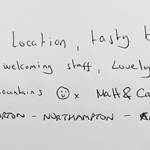 Location, tasty b
welcoming staff, Lovely
ountains ☺ x Matt & Ca
RTON - NORTHAMPTON -